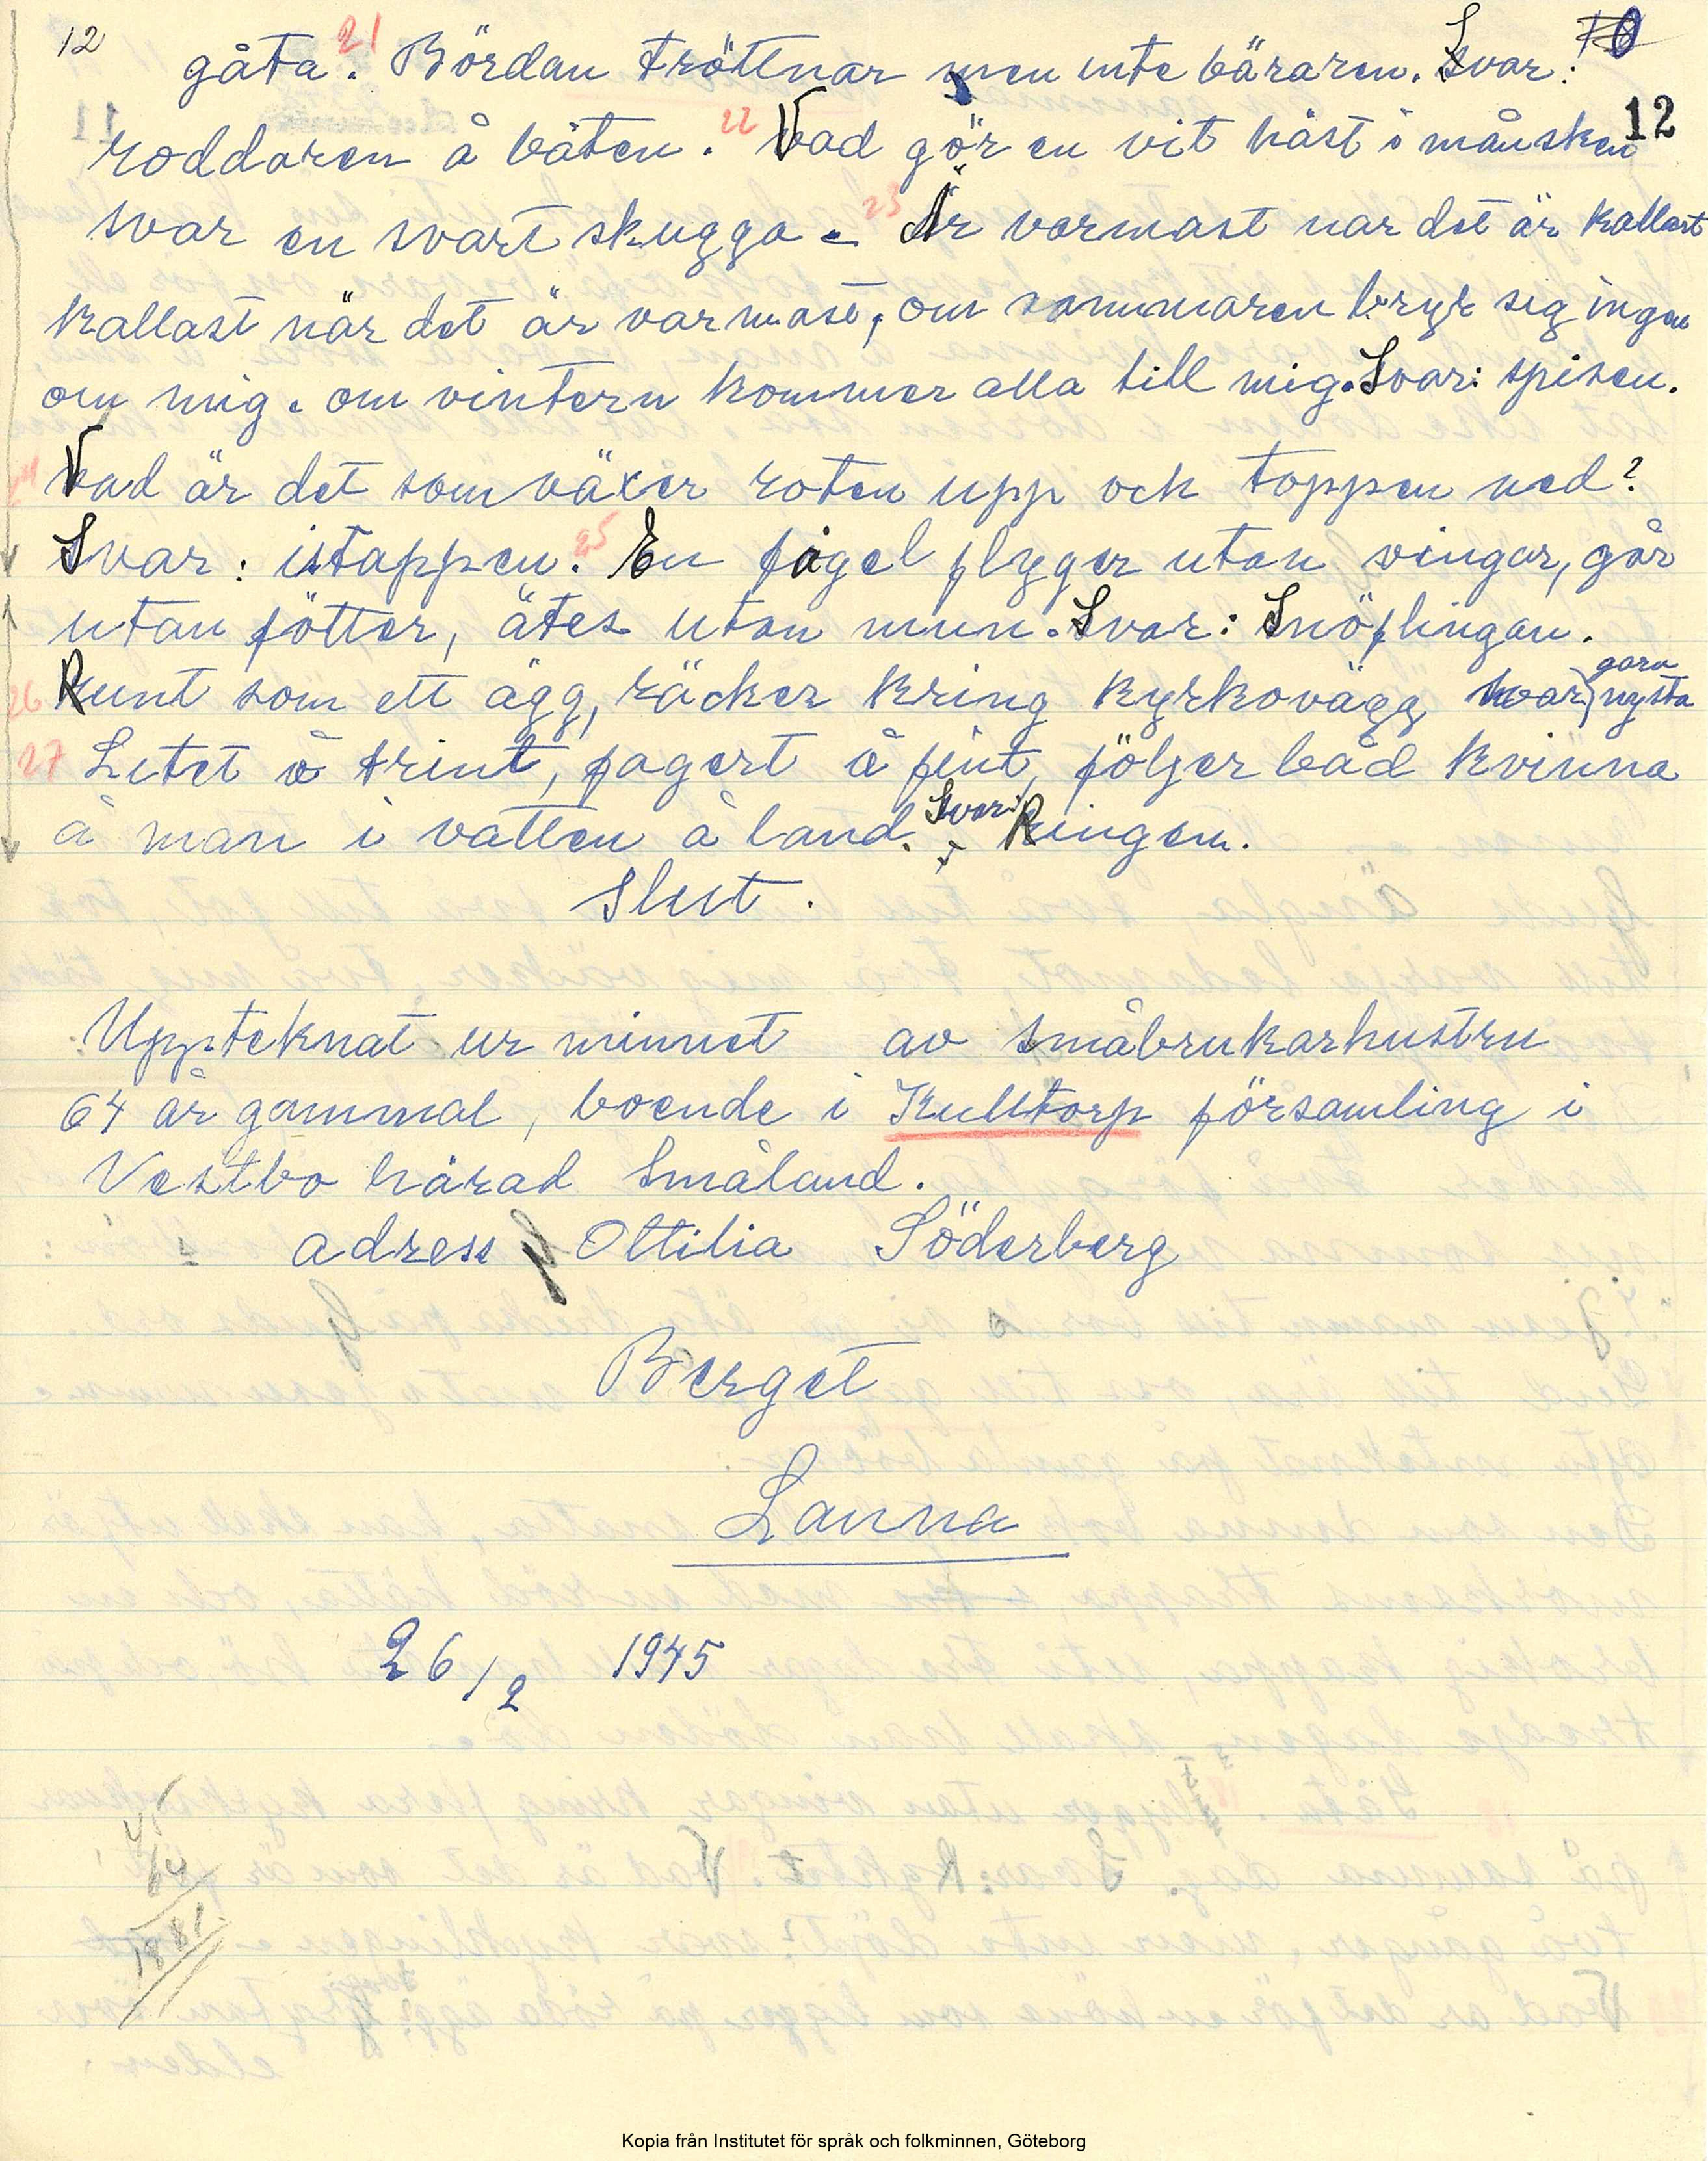 12
10
gåta. 21 Bördan tröttnar men inte bäraren. Svar:
12
roddaren å båten. 22 Vad gör en vit häst i månsken
svar en svart skugga. 23 Är varmast när det är kallast
kallast när det är varmast, om sommaren bryr sig ingen
om mig. om vintern kommer alla till mig. Svar: spisen.
24 Vad är det som växer roten upp och toppen ned?
Svar: istappen. 25 En fågel flyger utan vingar, går
utan fötter, ätes utan mun. Svar: Snöflingan.
26 Runt som ett ägg, räcker kring kyrkovägg svar, garn nysta
27 Litet å trint, fagert å fint, följer båd kvinna
å man i vatten å land. Svar: Ringen.
Slut.
Uppteknat ur minnet av småbrukarhustru
64 år gammal, boende i Kulltorp församling i
Vestbo härad Småland.
adress Ottilia Söderberg
Berget
Lanna
26/2 1945
45
64
1881
Kopia från Institutet för språk och folkminnen, Göteborg